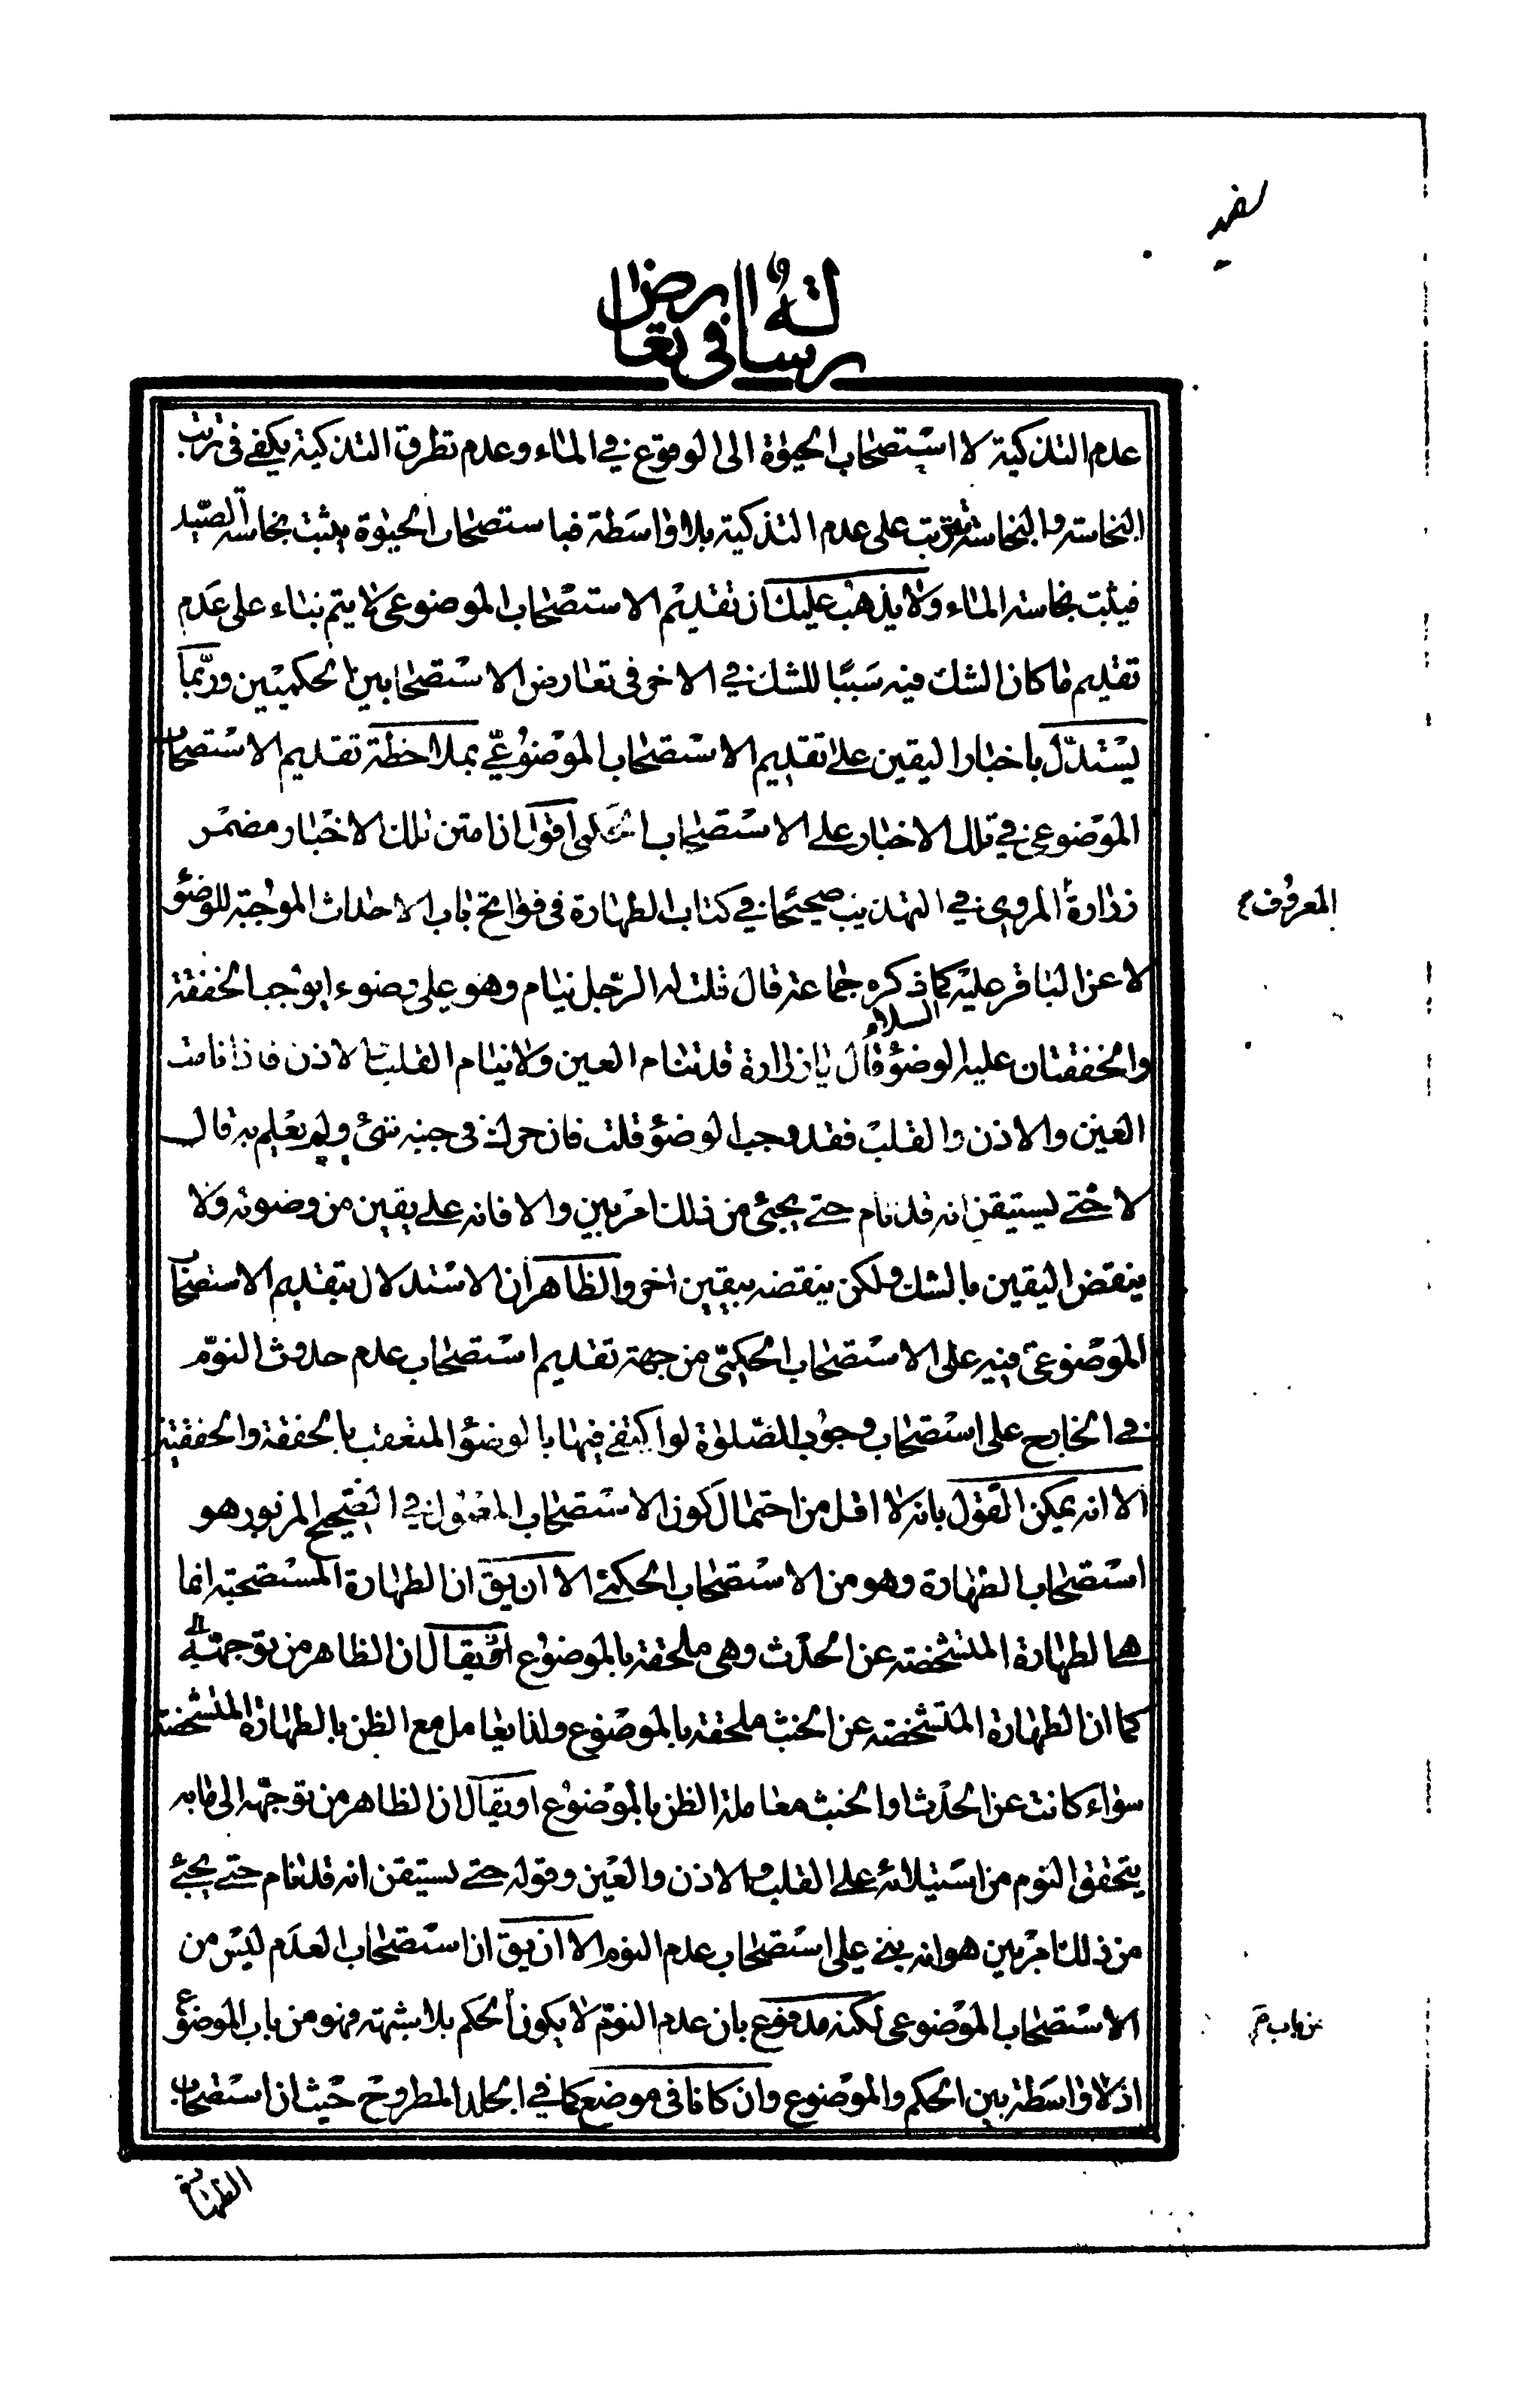 رسالة في تعارض ال
عدم التذكية لا استصحاب الحيوة الى الوقوع في الماء وعدم تطرق التذكية يكفي فى ترتب
النجاسة والنجاسة تترتب على عدم التذكية بلا واسطة فباستصحاب الحيوة يثبت نجاسة الصيد
فيثبت نجاسة الماء ولا يذهب عليك ان تقديم الاستصحاب الموضوعى لا يتم بناء على عدم
تقديم ما كان الشك فيه سببًا للشك في الاخر فى تعارض الاستصحابين الحكميين وربّما
يستدلّ باخبار اليقين على تقديم الاستصحاب الموضوعيّ بملاحظة تقديم الاستصحاب
الموضوعى في تلك الاخبار على الاستصحاب الحكمى اقول ان متن تلك الاخبار مضمر
زرارة المروى في التهذيب صحيحًا في كتاب الطهارة فى فواتح باب الاحداث الموجبة للوضوء
المعروف
لا عن الباقر عليه السلام كما ذكره جماعة قال قلت له الرّجل ينام وهو على وضوء ايوجب الخفقة
والخفقتان عليه الوضوء قال يا زرارة قد تنام العين ولا ينام القلب والاذن فاذا نامت
العين والاذن والقلب فقد وجب الوضوء قلت فان حرك فى جنبه شئ ولم يعلم به قال
لا حتى يستيقن انه قد نام حتى يجئ من ذلك امر بين والا فانه على يقين من وضوئه ولا
ينقض اليقين بالشك ولكن ينقضه بيقين اخر والظاهر ان الاستدلال بتقديم الاستصحاب
الموضوعى فيه على الاستصحاب الحكمّى من جهة تقديم استصحاب عدم حدوث النوم
في الخارج على استصحاب وجوب الصّلوة لو اكتفى فيها بالوضوء المتعقب بالخفقة والخفقتين
الا انه يمكن القول بانه لا اقل من احتمال كون الاستصحاب المعمول في الصّحيح المزبور هو
استصحاب الطهارة وهو من الاستصحاب الحكمى الا ان يق ان الطهارة المستصحبة انما
هى الطهارة المتشخصة عن الحدث وهى ملحقة بالموضوع او يقال ان الظاهر من توجهه الى
كما ان الطهارة المتشخصة عن الخبث ملحقة بالموضوع ولذا يعامل مع الظن بالطهارة المتشخصة
سواء كانت عن الحدث او الخبث معاملة الظن بالموضوع او يقال ان الظاهر من توجّهه الى ما به
يتحقق النوم من استيلائه على القلب والاذن والعين وقوله حتى يستيقن انه قد نام حتى يجئ
من ذلك امر بين هو انه بنى على استصحاب عدم النوم الا ان يق ان استصحاب العدم ليس من
الاستصحاب الموضوعى لكنه مدفوع بان عدم النوم لا يكون الحكم بلا شبهة فهو من باب الموضوع
من باب
اذ لا واسطة بين الحكم والموضوع وان كانا فى موضع كما في الجلد المطروح حيث ان استصحاب
الطهارة